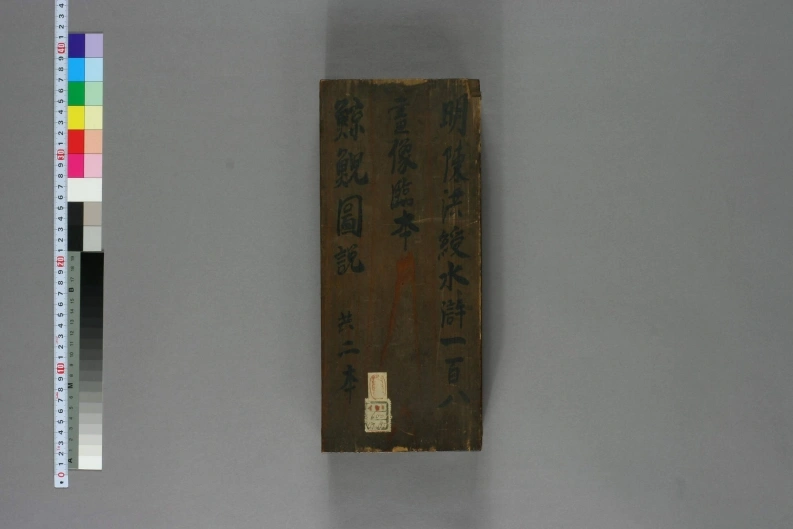 明陳洪綬水滸一百八
畫像臨本
鯨鯢圖説
共二本